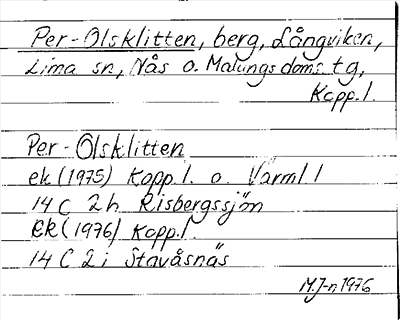 Per-Olsklitten, berg, Långviken,
Lima sn, Nås o. Malungs doms. tg,
Kopp. l.
Per-Olsklitten
ek (1975) Kopp. l. o. Värml l
14 C 2 h Risbergssjön
ek (1976) Kopp. l
14 C 2 i Stavåsnäs
M.J-n 1976